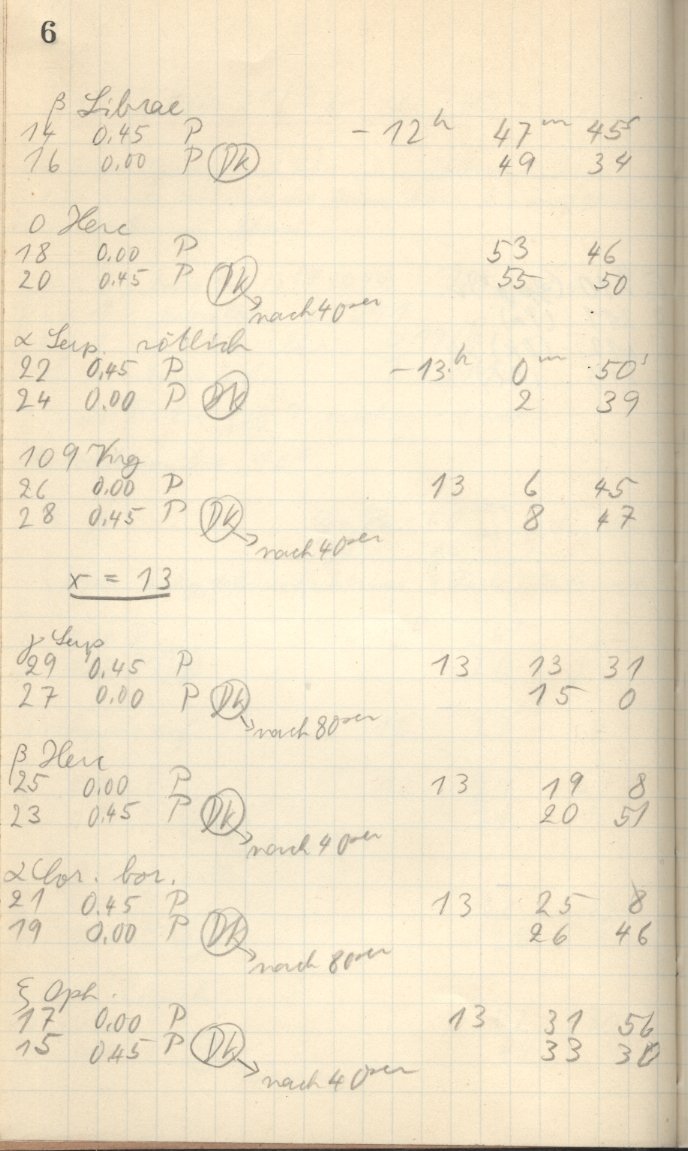 6
β Librae
14 0.45 P - 12h 47m 45s
16 0.00 P Dk 49 34
o Herc
18 0.00 P 53 46
20 0.45 P Dk 55 50
nach 40er
α Serp. rötlich
22 0.45 P - 13h 0m 50s
24 0.00 P Dk 2 39
109 Virg
26 0.00 P 13 6 45
28 0.45 P Dk 8 47
nach 40er
x = 13
γ Serp
29 0.45 P 13 13 31
27 0.00 P Dk 15 0
nach 80er
β Herc
25 0.00 P 13 19 8
23 0.45 P Dk 20 51
nach 40er
α Cor. bor.
21 0.45 P 13 25 8
19 0.00 P Dk 26 46
nach 80er
ξ Oph.
17 0.00 P 13 31 56
15 0.45 P Dk 33 30
nach 40er